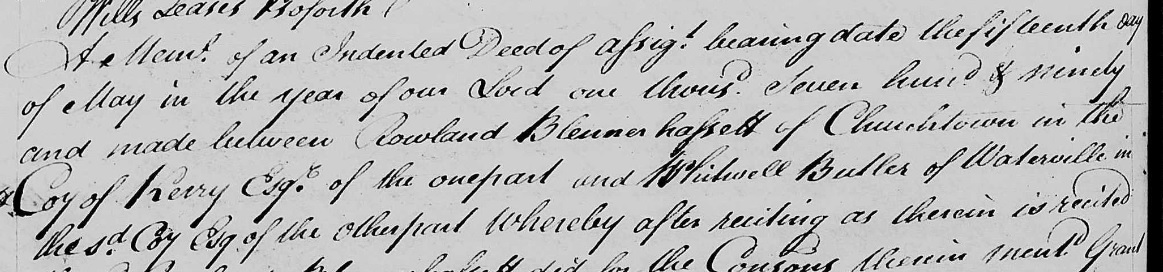 Wills Leases &soforth
A Meml. of an Indented Deed of assigt. bearing date the fifteenth day
of May in the year of our Lord one thousd. Seven hund. & ninety
and made between Rowland Blennerhassett of Churchtown in the
Coy of Kerry Esqr. of the onepart and Whitwell Butler of Waterville in
the sd. Coy Esq of the otherpart Whereby after reciting as therein is recited
did for the Consons therein mentd. Grant